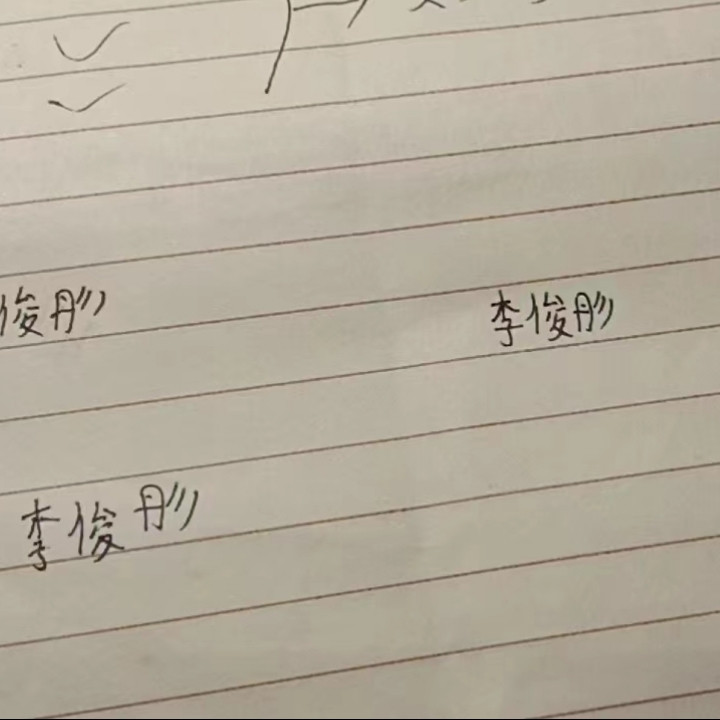 俊彤 李俊彤
李俊彤